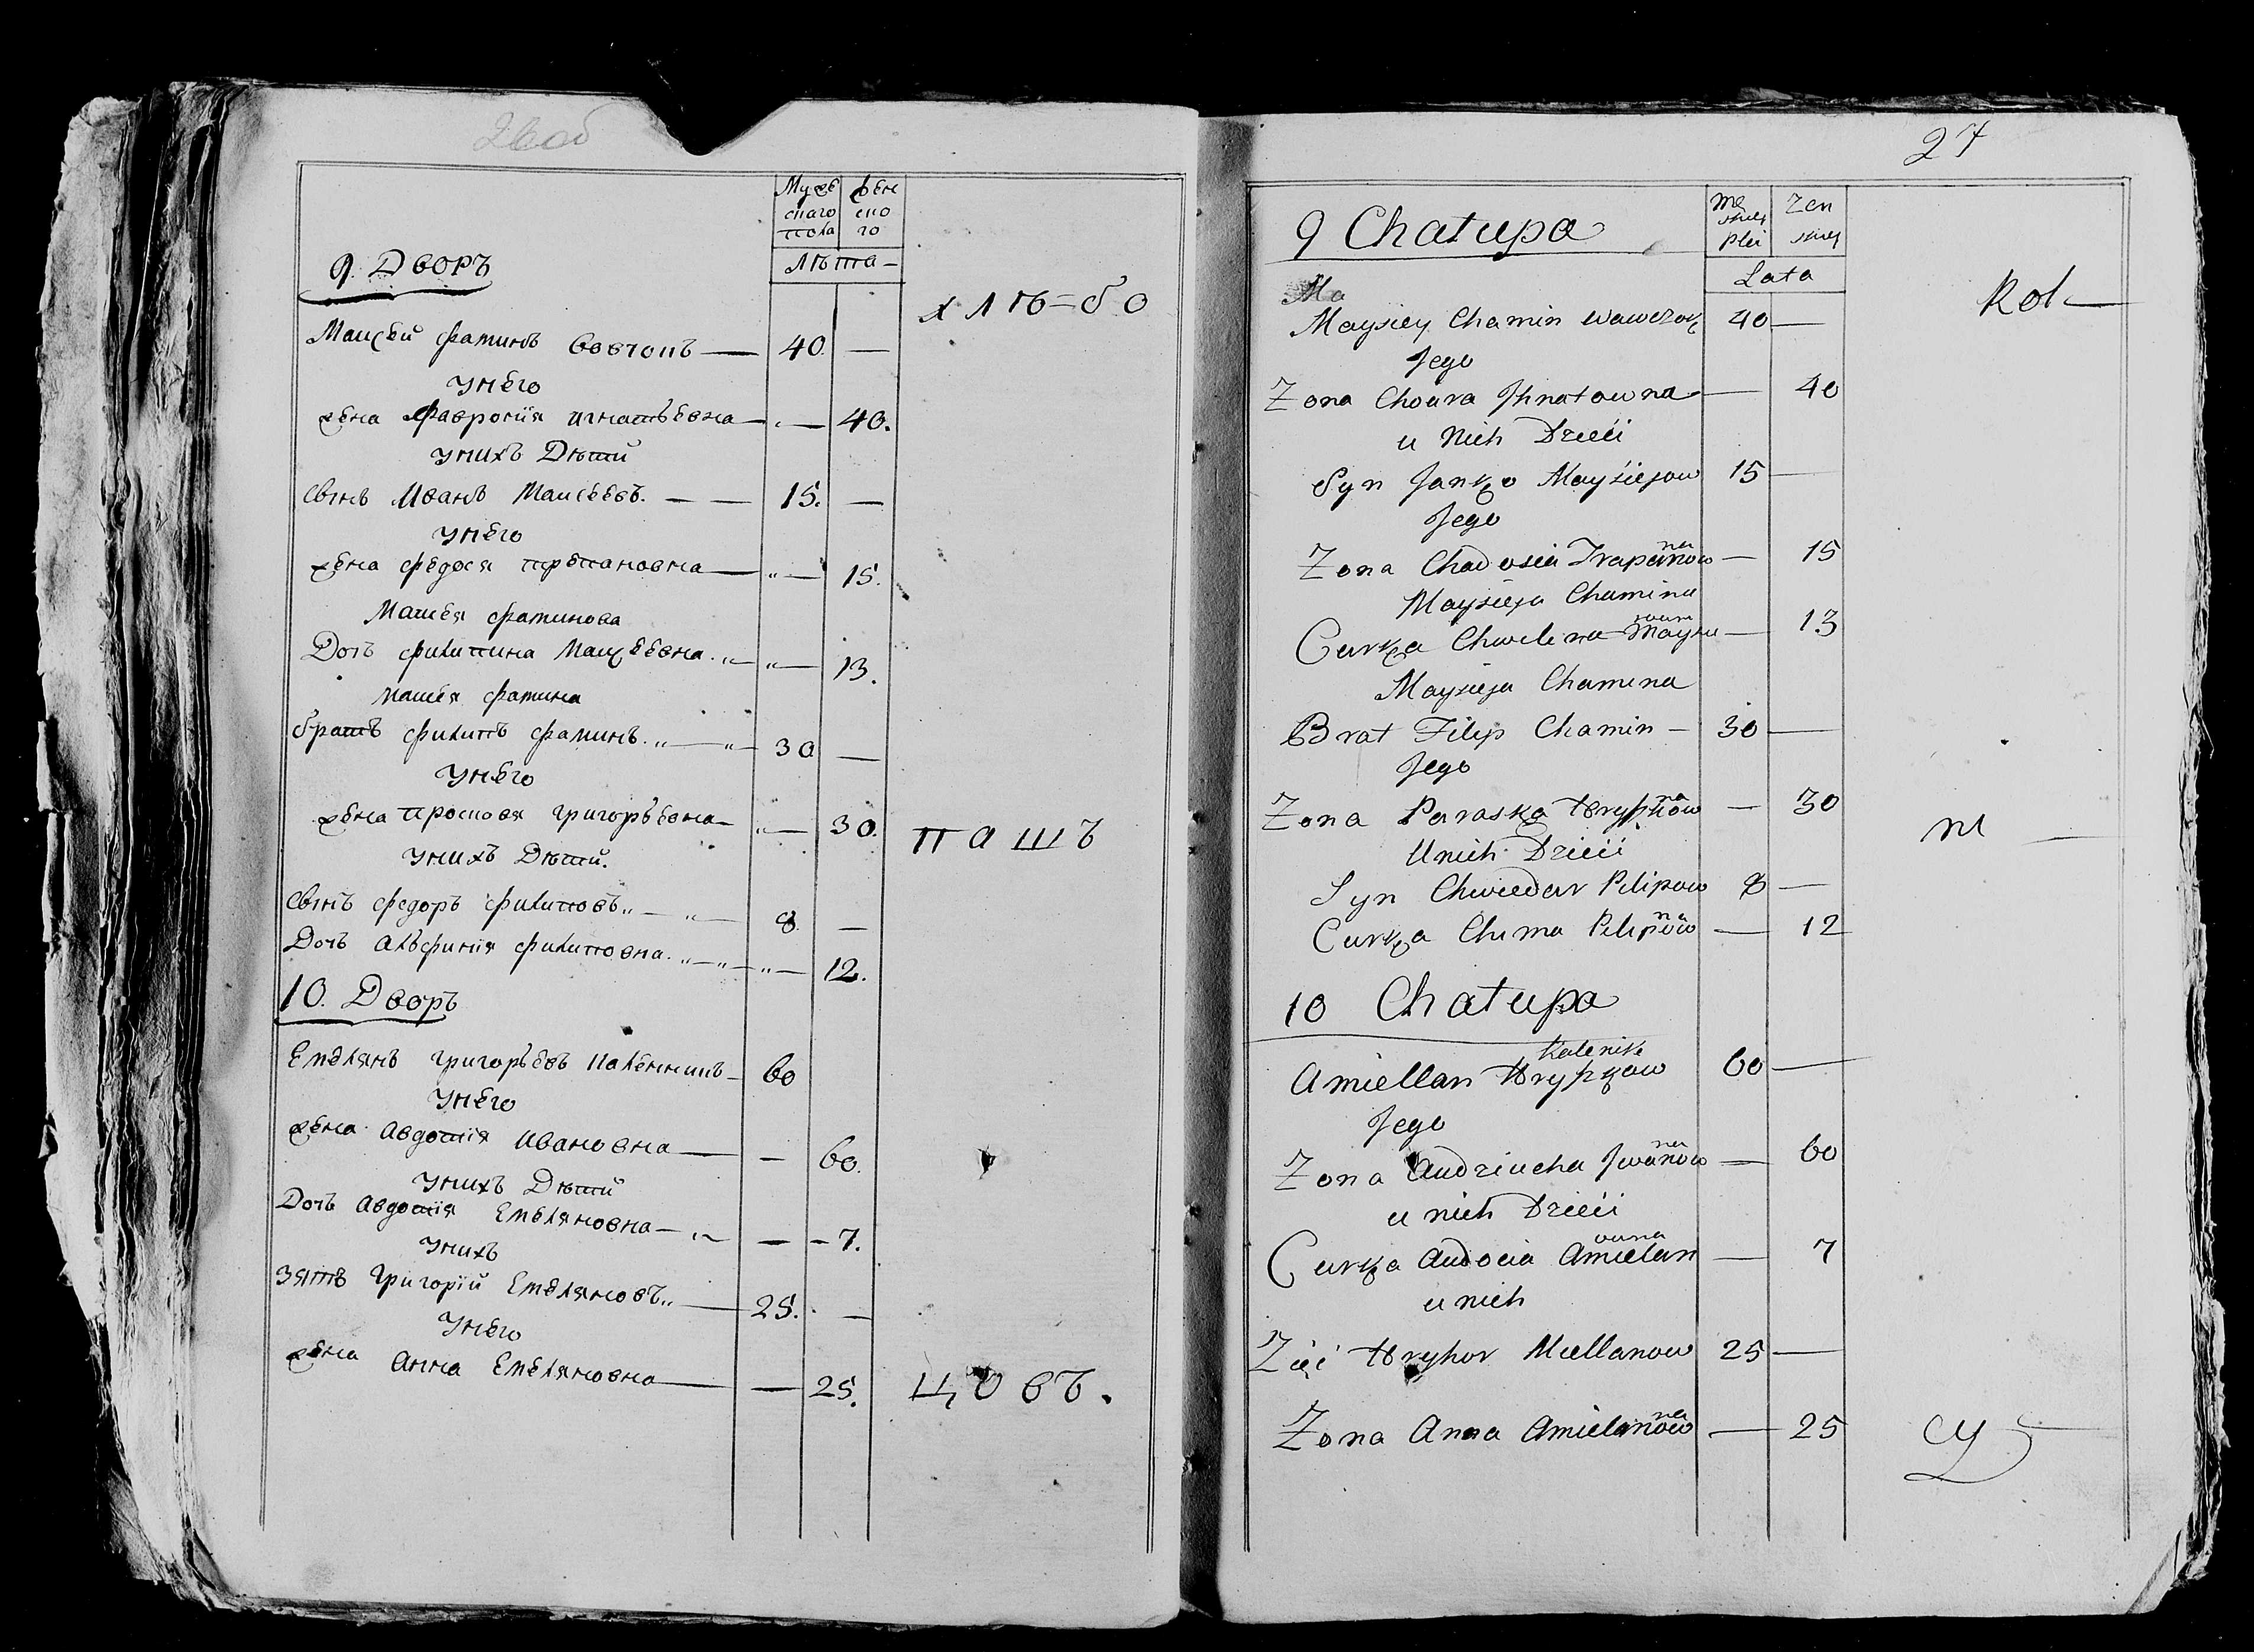 26об
Муже ского пола
Жен ско го
Лѣта
9. Дворъ
хлѣбо
Моисей Фаминъ Вовчокъ — 40. —
У него
жена Фаврония Игнатьевна — 40.
У нихъ Дѣти
Сынъ Иванъ Моисеевъ. — 15. —
У него
жена Федося Трепановна — 15.
Моисея Фаминова
Дочъ Филипина Моисеевна — 13.
Моисея Фамина
братъ Филипъ Фаминъ — 30 —
У него
жена Просковя Григорьевна — 30.
пашъ
У нихъ Дѣти.
Сынъ Федоръ Филиповъ — 8. —
Дочъ Альфимия Филиповна — 12.
10. Дворъ
Емельянъ Григорьевъ Каленникъ — 60
У него
жена Авдотия Ивановна — 60.
У нихъ Дѣти
Дочъ Авдотия Емеляновна — 7.
У нихъ
Зять Григорій Емеляновъ — 25. —
У него
жена Анна Емеляновна — 25.
цовъ.
27
9 Chatupa
Mę skiey Plci
Zen skiey
Lata
Rol—
Ma
Maysiey Chamin Wawczok 40 —
Jego
Zona Choura Jhnatowna — 40
u Nich Dzieci
Syn Janko Maysiejow 15 —
Jego
Zona Chadosia Trapanowna — 15
Maysieja Chamina
Curka Chwelina Maysiewna — 13
Maysieja Chamina
Brat Filip Chamin — 30 —
Jego
Zona Paraska Hryhorowna — 30
ni —
U nich Dzieci
Syn Chwiedar Pilipow 8 —
Curka Chima Pilipowna — 12
10 Chatupa
Kalenik
Amiellan Hryhorow 60 —
Jego
Zona Audziucha Jwanowna — 60
u nich Dzieci
Curka Audocia Amielanowna — 7
u nich
Zięć Hryhor Miellanow 25 —
Zona Anna Amielanowna — 25
cy